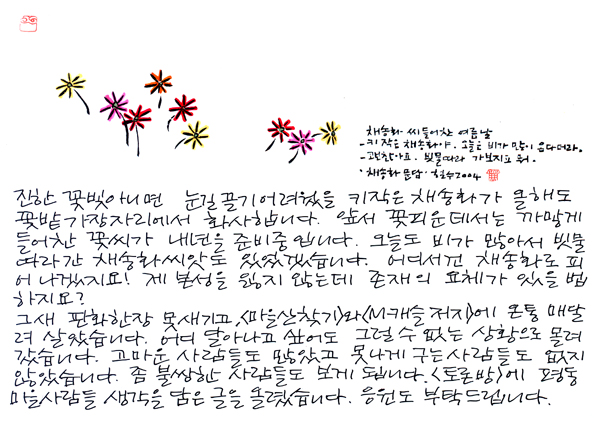 채송화 씨 들어찬 여름날
-키 작은 채송화야. 오늘은 비가 많이 온다더라.
-괜찮아요. 빗물따라 가보지요 뭐.
·채송화 문답· 철수2004
진한 꽃빛아니면 눈길 끌기 어려웠을 키작은 채송화가 올해도
꽃밭 가장자리에서 화사합니다. 앞서 꽃피운데서는 까맣게
들어찬 꽃씨가 내년을 준비중입니다. 오늘도 비가 많아서 빗물
따라간 채송화씨앗도 있었겠습니다. 어디서건 채송화로 피
어 나겠지요! 제 본성을 잃지 않는데 존재의 요체가 있을 법
하지요?
그새 판화한장 못새기고, <마을산찾기>와 <M캐슬저지>에 온통 매달
려 살았습니다. 어디 달아나고 싶어도 그럴 수 없는 상황으로 몰려
갔습니다. 고마운 사람들도 많았고 못나게 구는 사람들도 없지
않았습니다. 좀 불쌍한 사람들도 보게 됩니다. <토론방>에 평동
마을사람들 생각을 담은 글을 올렸습니다. 응원도 부탁드립니다.